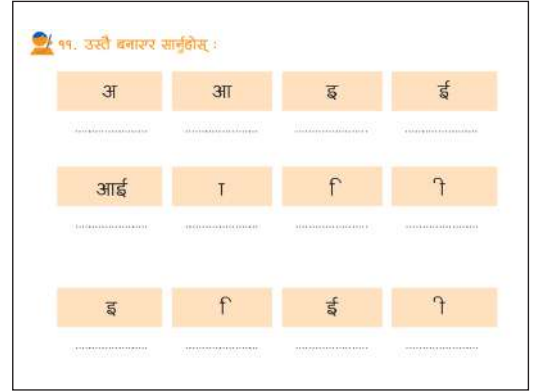 ११. उस्तै बनाएर सार्नुहोस् :
अ आ इ ई
आई ा ि ी
इ ि ई ी